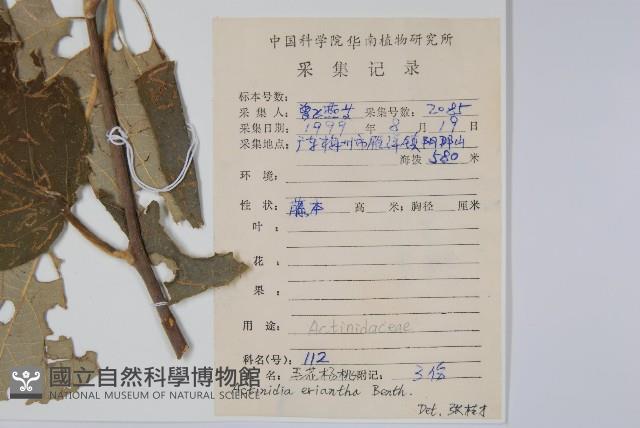 中国科学院华南植物研究所
采集记录
标本号数:
采集人: 曾 采集号数: 2085
采集日期: 1999 年 8 月 19 日
采集地点: 广东梅州市雁洋镇阴那山
海拔 580 米
环境:
性状: 藤本 高 米; 胸径 厘米
叶:
花:
果:
用途: Actinidaceae
科名(号): 112
名: 毛花杨桃 附记: 3份
Actinidia eriantha Benth.
Det.
國立自然科學博物館
NATIONAL MUSEUM OF NATURAL SCIENCE